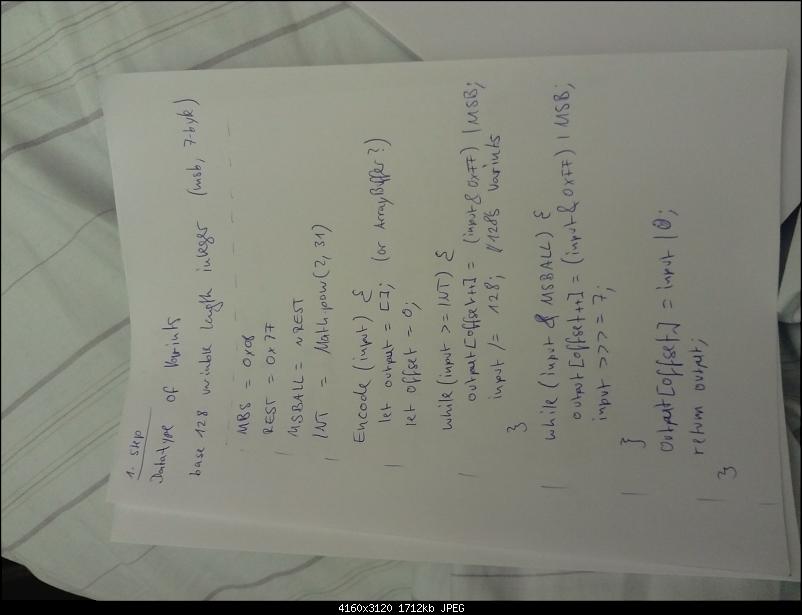 1. Step
Datatype of Varints
base 128 variable length integer (msb, 7-byte)
MBS = 0x08
REST = 0x77
MSBALL = ~REST
INT = Math.pow(2, 31)
Encode (input) {
let output = []; (or ArrayBuffer?)
let offset = 0;
while (input >= INT) {
output[offset++] = (input & 0xFF) | MSB;
input /= 128; //128b Varints
}
while (input & MSBALL) {
output[offset++] = (input & 0xFF) | MSB;
input >>>= 7;
}
Output[offset] = input | 0;
return output;
}
4160x3120 1712kb JPEG